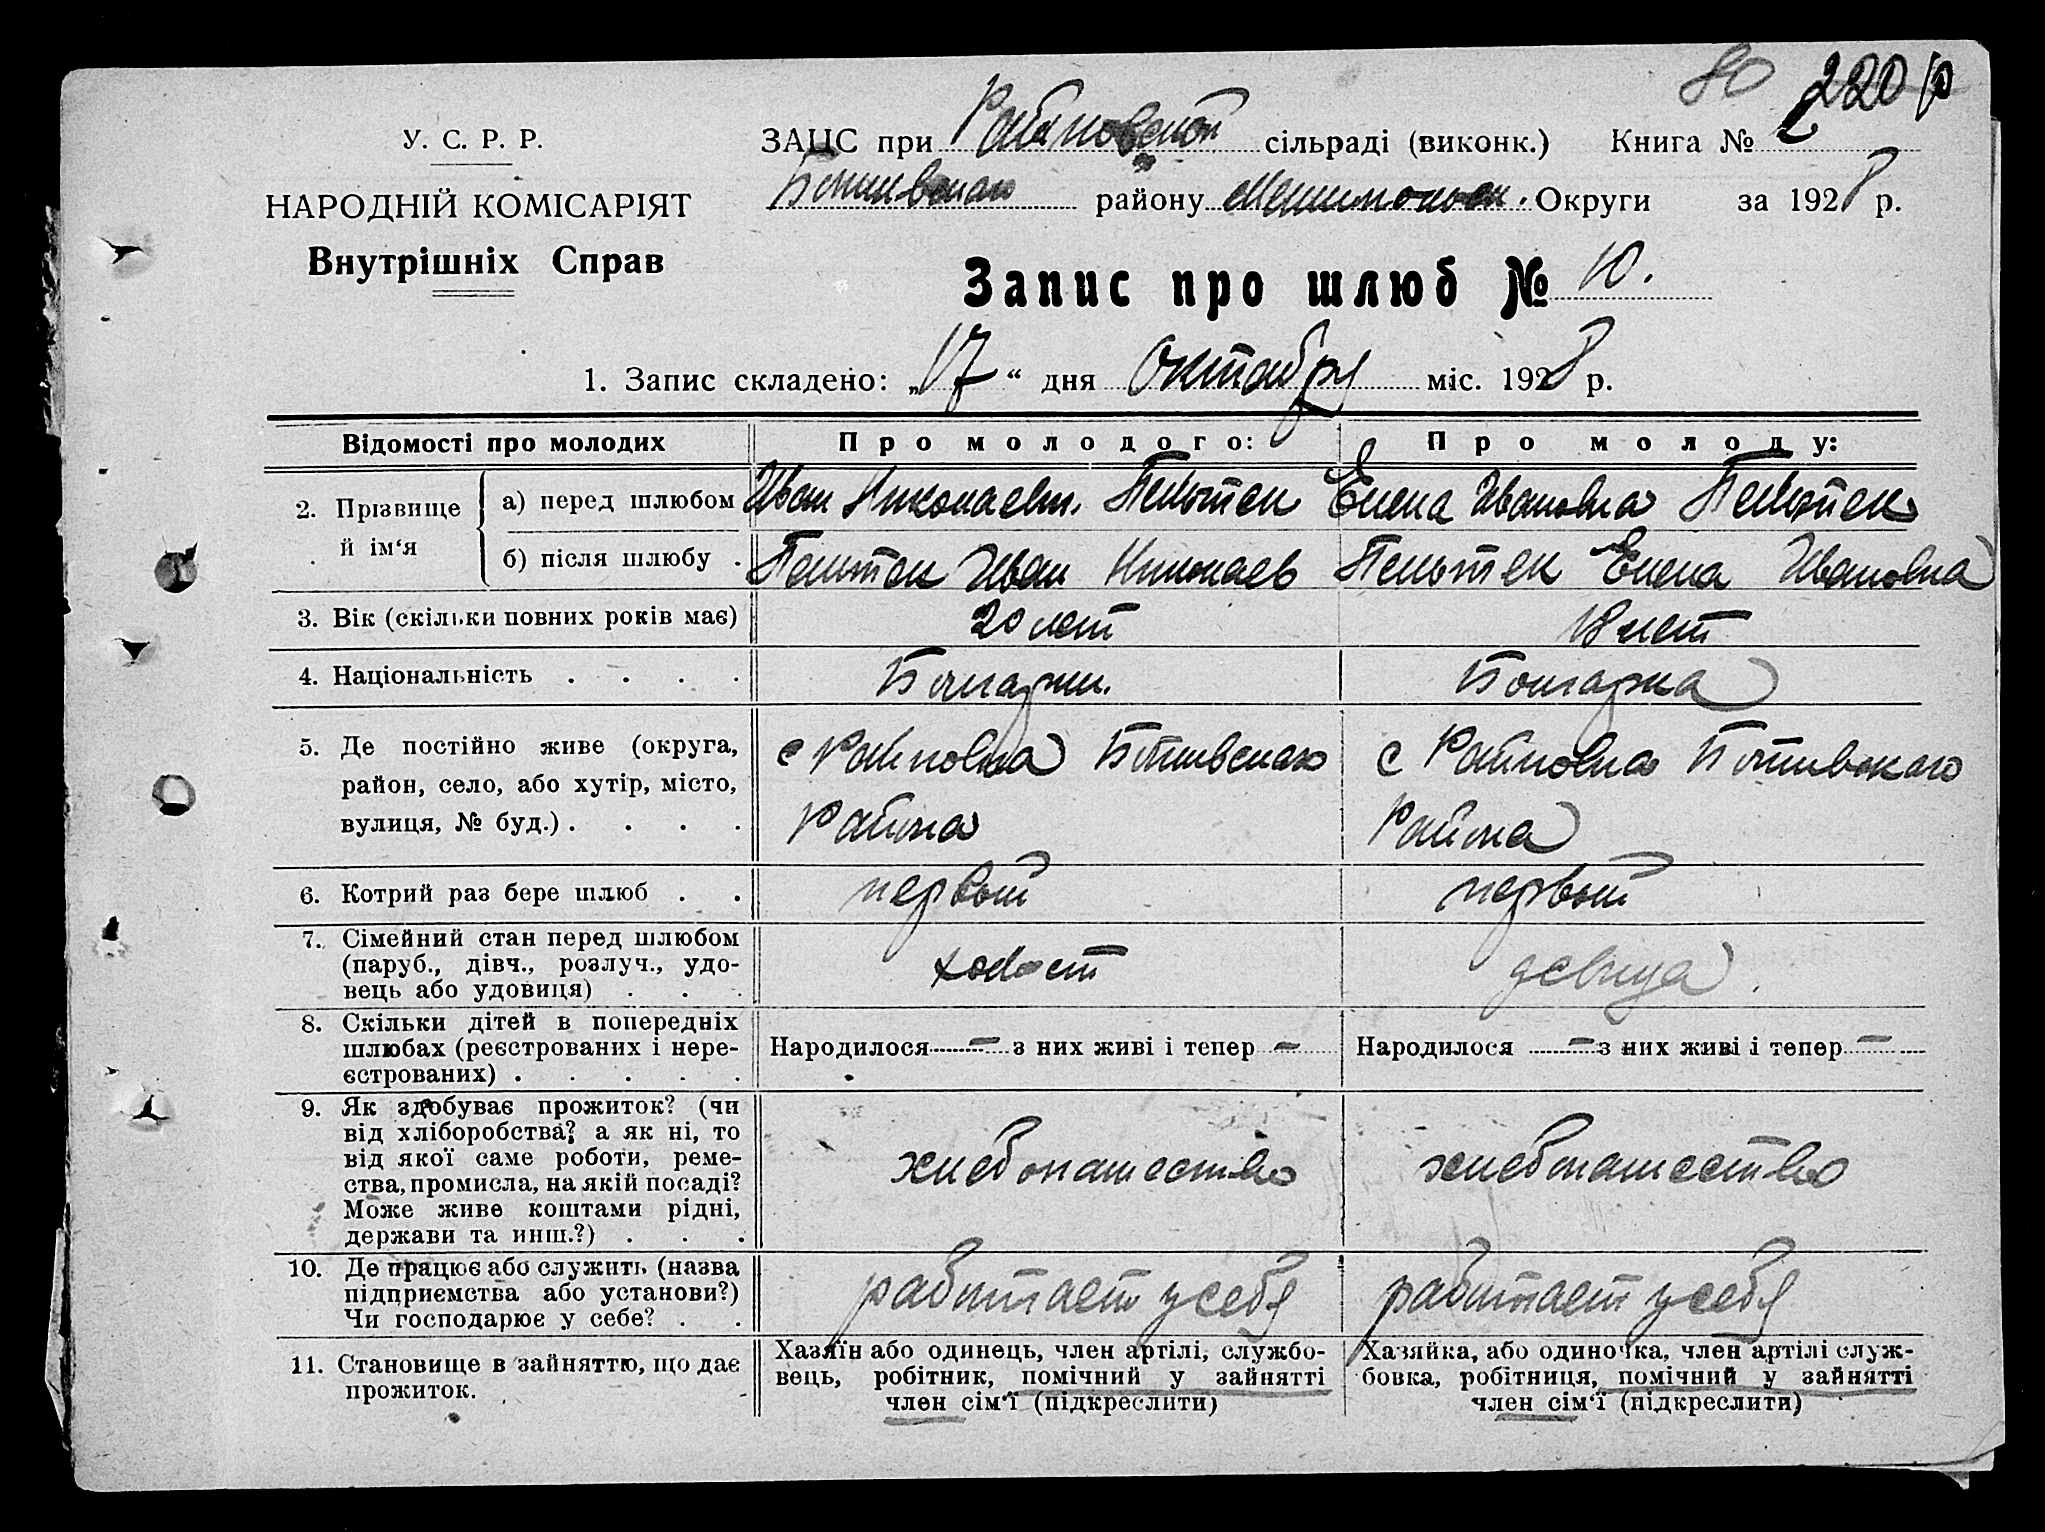 80 220
У. С. Р. Р.
НАРОДНІЙ КОМІСАРІЯТ
Внутрішніх Справ
ЗАЦС при Райновской сільраді (виконк.) Книга №
Ботиевского району Мелитопольск. Округи за 1928 р.
Запис про шлюб № 10.
1. Запис складено: „17“ дня Октября міс. 1928 р.
Відомості про молодих
Про молодого:
Про молоду:
2. Прізвище й ім‘я
а) перед шлюбом
Иван Николаевич. Пельтек
Елена Ивановна Пельтек
б) після шлюбу .
Пельтек Иван Николаев
Пельтек Елена Ивановна
3. Вік (скільки повних років має)
20 лет
18 лет
4. Національність . . . .
Болгарин.
Болгарка
5. Де постійно живе (округа,
район, село, або хутір, місто,
вулиця, № буд.) . . . .
с Райновка Ботиевского
Района
с Райновка Ботиевского
Района
6. Котрий раз бере шлюб . .
первый
первый
7. Сімейний стан перед шлюбом
(паруб., дівч., розлуч., удо-
вець або удовиця) . . .
холост
девица
8. Скільки дітей в попередніх
шлюбах (реєстрованих і нере-
єстрованих) . . . . .
Народилося — з них живі і тепер —
Народилося — з них живі і тепер —
9. Як здобуває прожиток? (чи
від хліборобства? а як ні, то
від якої саме роботи, реме-
ства, промисла, на якій посаді?
Може живе коштами рідні,
держави та инш.?) . . .
хлебопашество
хлебопашество
10. Де працює або служить (назва
підприємства або установи?)
Чи господарює у себе? . .
работает у себя
работает у себя
11. Становище в зайняттю, що дає
прожиток.
Хазяїн або одинець, член артілі, службо-
вець, робітник, помічний у зайнятті
член сім‘ї (підкреслити)
Хазяйка, або одиночка, член артілі служ-
бовка, робітниця, помічний у зайнятті
член сім‘ї (підкреслити)